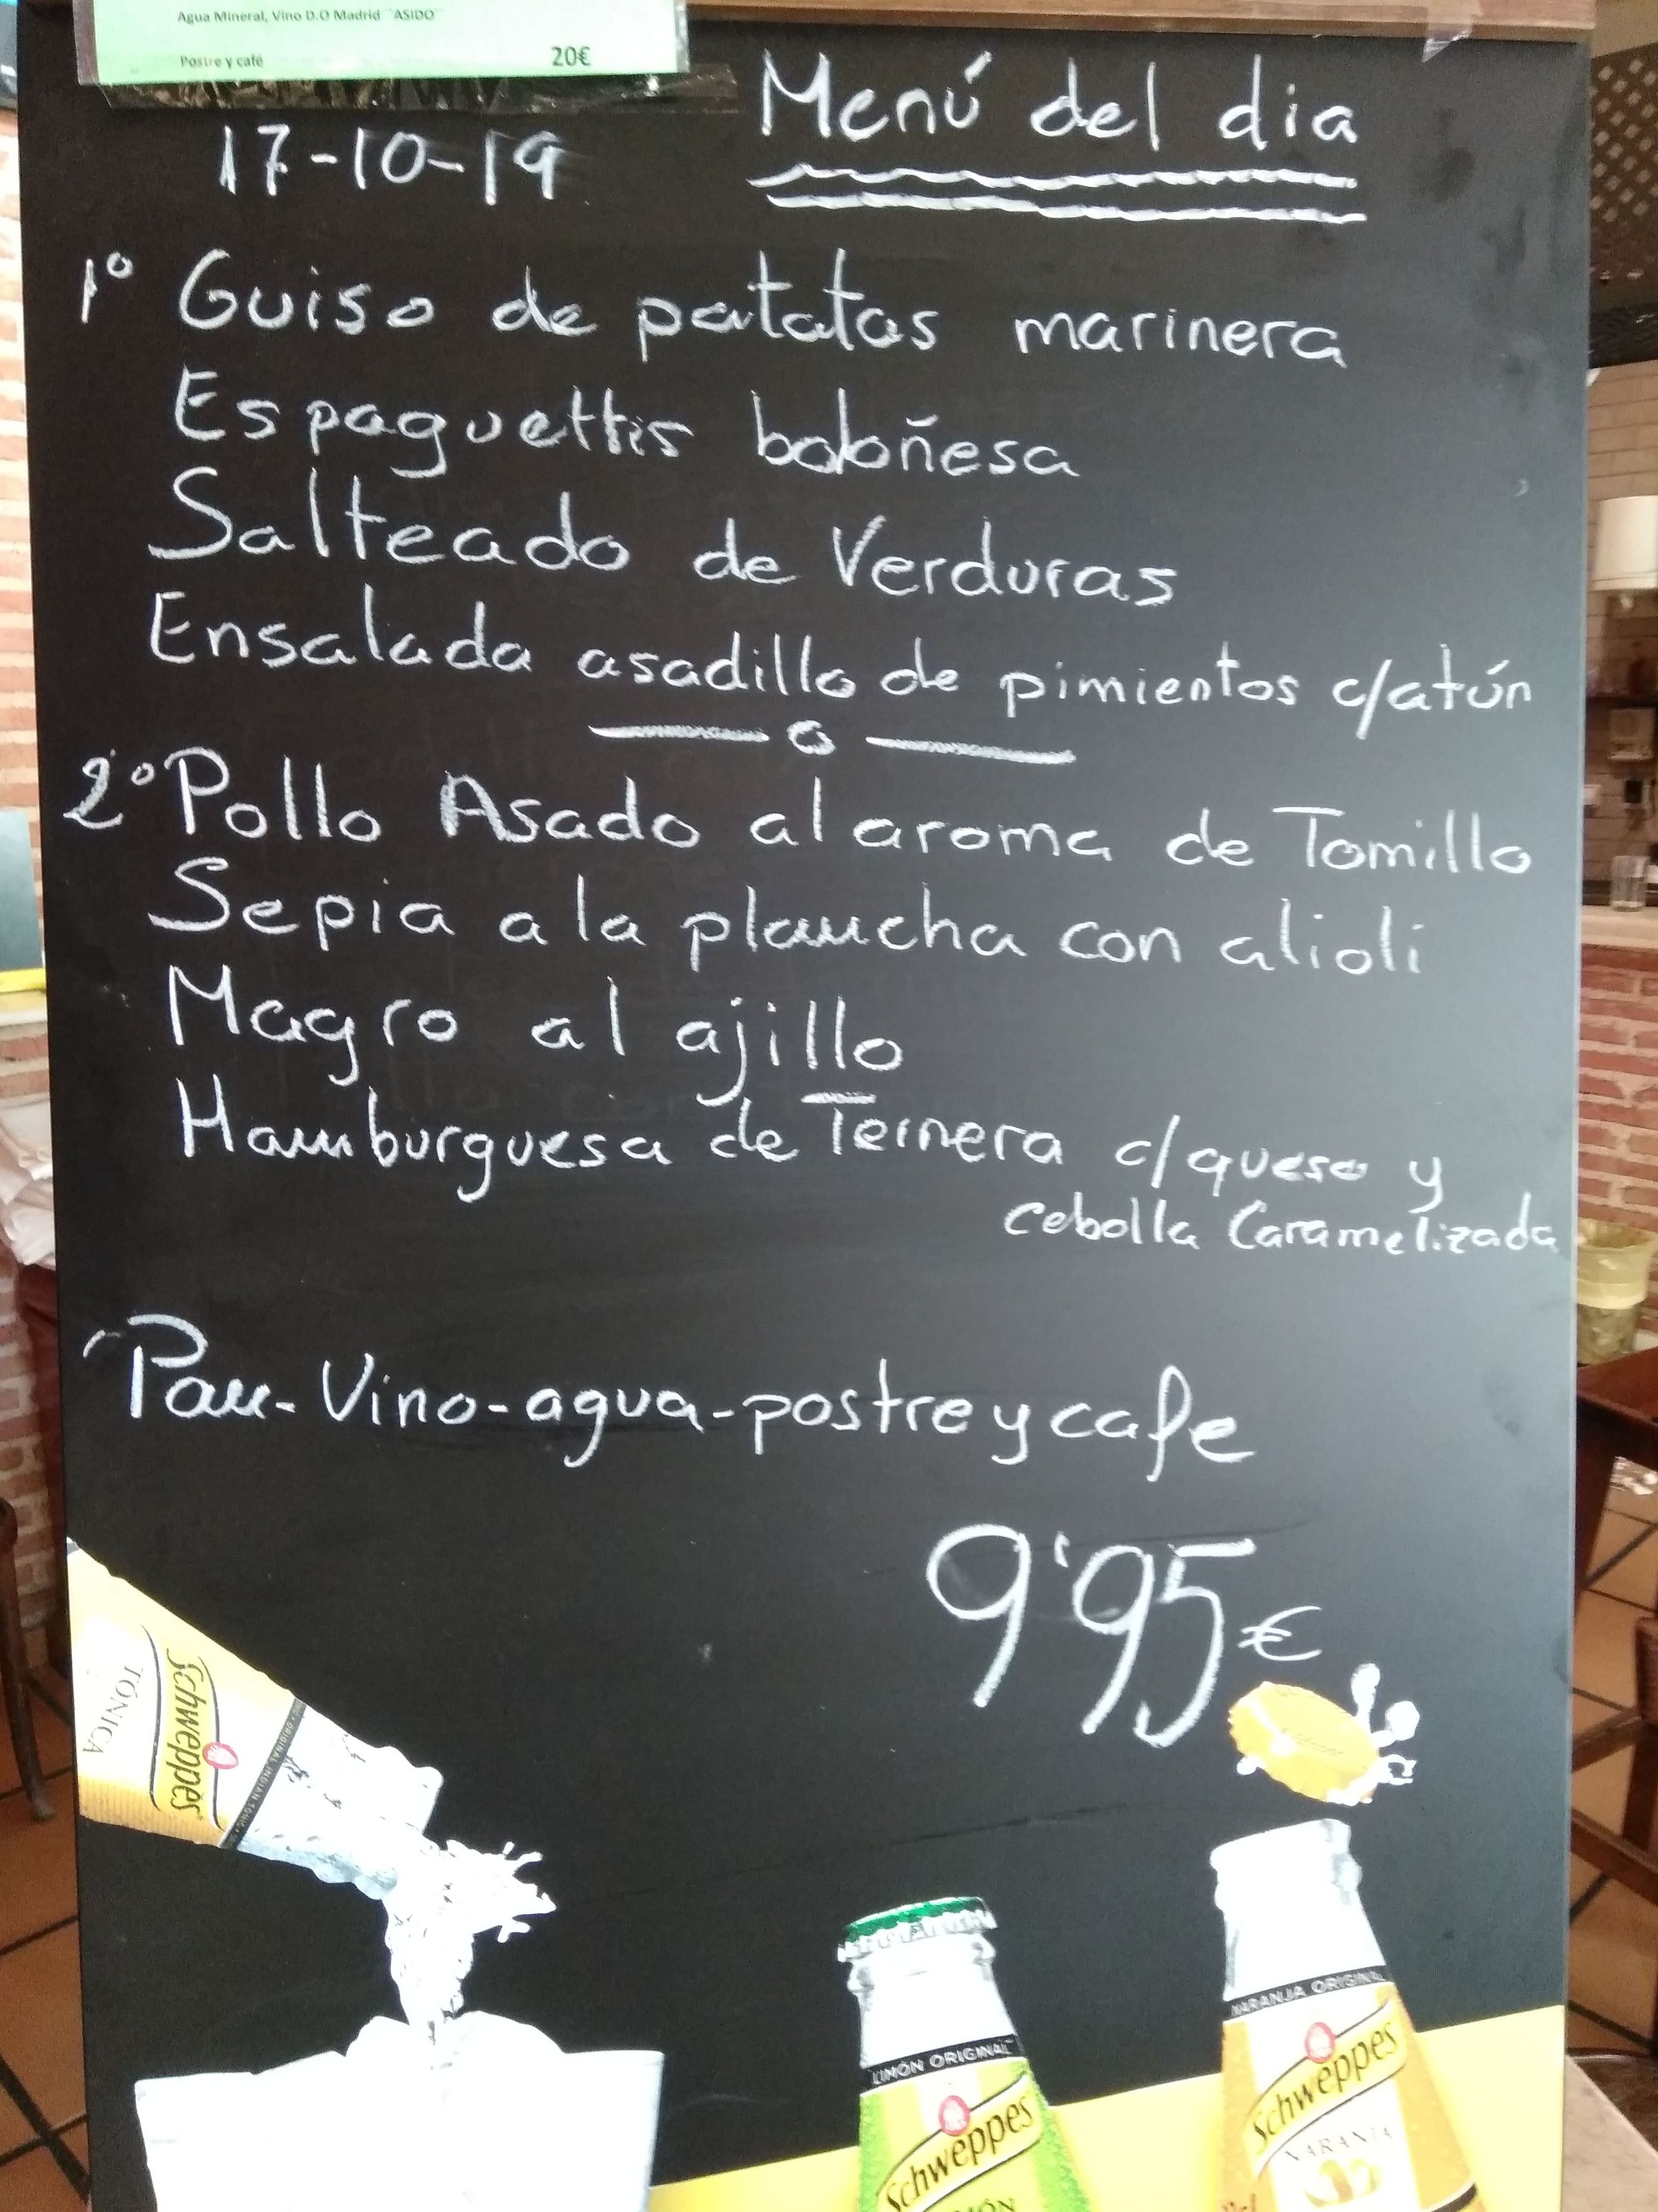 Agua Mineral, Vino D.O Madrid ¨ASIDO¨
Postre y café 20€
17-10-19 Menú del dia
1º Guiso de patatas marinera
Espaguettis boloñesa
Salteado de Verduras
Ensalada asadillo de pimientos c/atún
2º Pollo Asado al aroma de Tomillo
Sepia a la plancha con alioli
Magro al ajillo
Hamburguesa de Ternera c/queso y
cebolla Caramelizada
Pan-Vino-agua-postre y cafe
9'95€
Schweppes
TÓNICA
ORIGINAL INDIAN TONIC
LIMÓN ORIGINAL
Schweppes
LIMÓN
NARANJA ORIGINAL
Schweppes
NARANJA